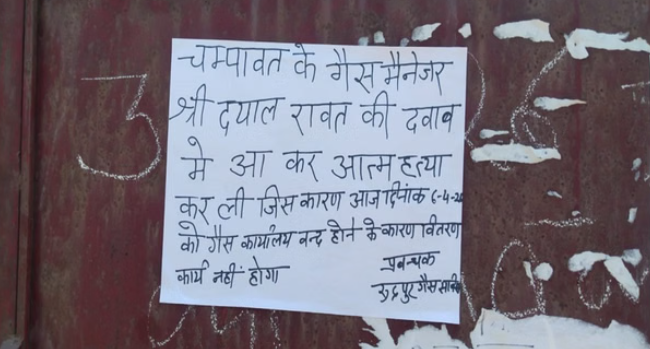 चम्पावत के गैस मैनेजर
श्री दयाल रावत की दवाब
मे आ कर आत्महत्या
कर ली जिस कारण आज दिनांक 6-4-26
को गैस कार्यालय बन्द होने के कारण वितरण
कार्य नहीं होगा
प्रबन्धक
रुद्रपुर गैस सर्विस
3